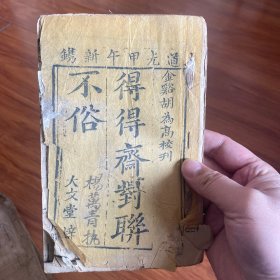 道光甲午新鐫
金谿胡為高校刊
得得齋對聯
不俗
楊萬青執
大文堂